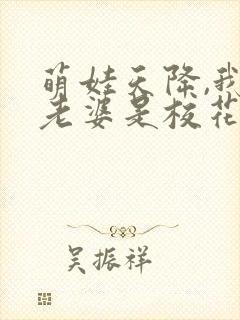 萌娃天降,我
老婆是校花
吴振祥